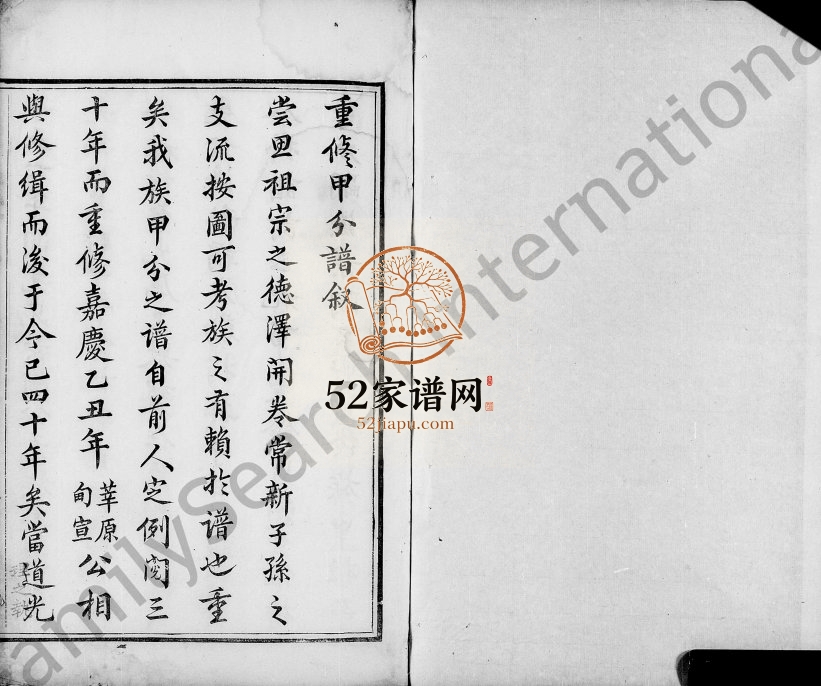 重修甲分譜敘
嘗思祖宗之德澤開卷常新子孫之
支流按圖可考族之有賴於譜也重
矣我族甲分之譜自前人定例閱三
十年而重修嘉慶乙丑年莘原甸宣公相
與修緝而後于今已四十年矣當道光
52家谱网
52jiapu.com
amilySearch International